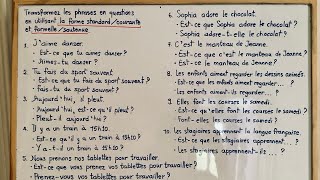 Transformez les phrases en questions
en utilisant la forme standard/courante
et formelle/soutenue
1. J'aime danser.
- Est-ce que tu aimes danser ?
- Aimes-tu danser ?
2. Tu fais du sport souvent.
- Est-ce que tu fais du sport souvent ?
- Fais-tu du sport souvent ?
3. Aujourd'hui, il pleut.
- Est-ce qu'il pleut aujourd'hui ?
- Pleut-il aujourd'hui ?
4. Il y a un train à 15h10.
- Est-ce qu'il y a un train à 15h10 ?
- Y a-t-il un train à 15h10 ?
5. Nous prenons nos tablettes pour travailler.
- Est-ce que vous prenez vos tablettes pour travailler ?
- Prenez-vous vos tablettes pour travailler ?
6. Sophia adore le chocolat.
- Est-ce que Sophia adore le chocolat ?
- Sophia adore-t-elle le chocolat ?
7. C'est le manteau de Jeanne.
- Est-ce que c'est le manteau de Jeanne ?
- Est-ce le manteau de Jeanne ?
8. Les enfants aiment regarder les dessins animés.
- Est-ce que les enfants aiment regarder... ?
- Les enfants aiment-ils regarder... ?
9. Elles font les courses le samedi.
- Est-ce qu'elles font les courses le samedi ?
- Font-elles les courses le samedi ?
10. Les stagiaires apprennent la langue française.
- Est-ce que les stagiaires apprennent... ?
- Les stagiaires apprennent-ils... ?